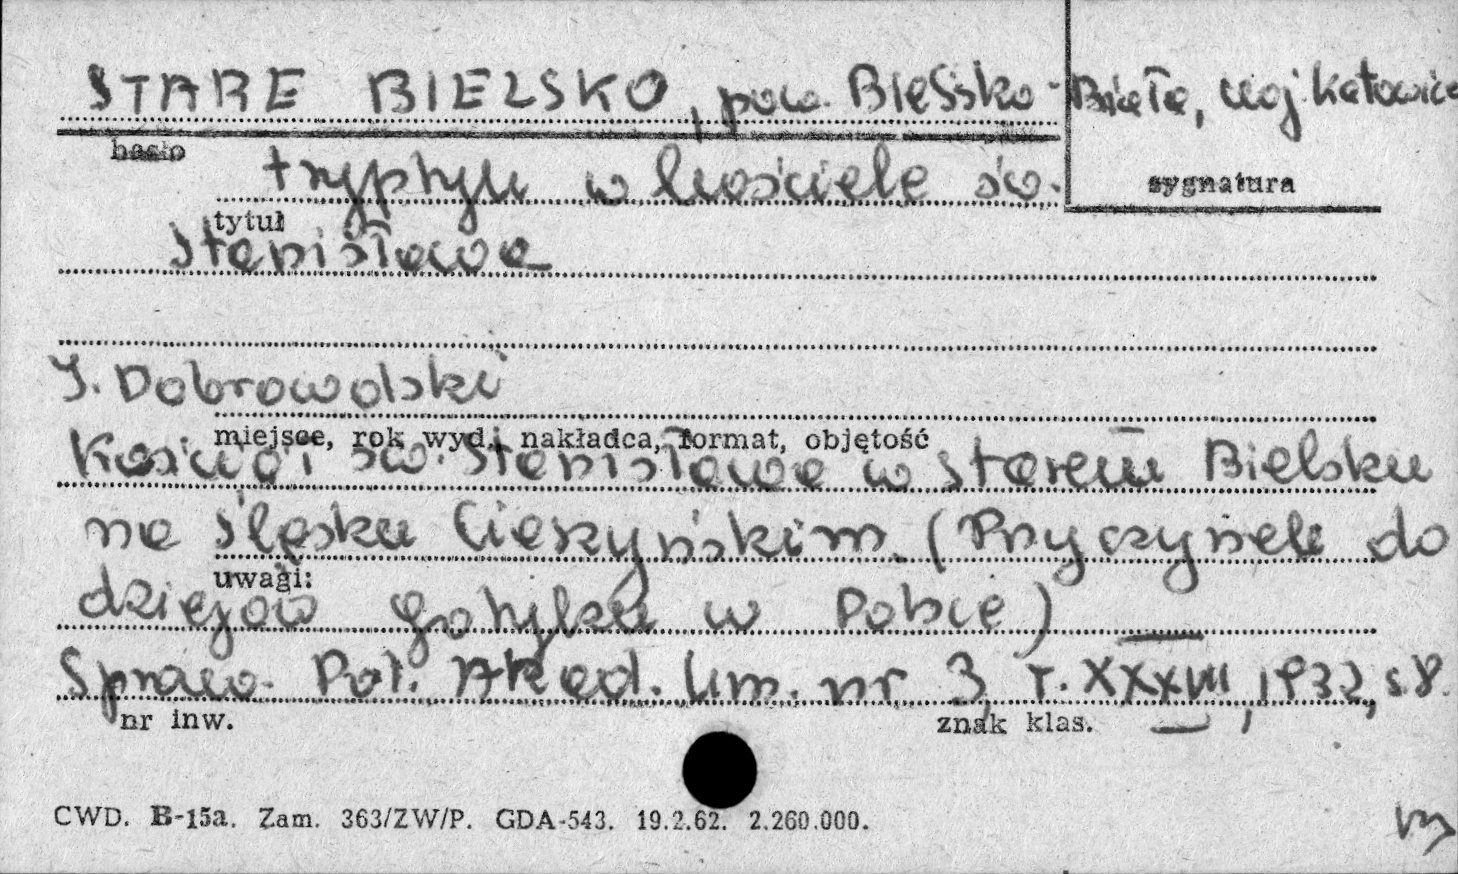 STARE BIELSKO, pow. Bielsko-Biała, woj. Katowice
hasło
tryptyk w kościele św.
sygnatura
tytuł
Stanisława
T. Dobrowolski
miejsce, rok wyd., nakładca, format, objętość
Kościół św. Stanisława w Starem Bielsku
na Śląsku Cieszyńskim. (Przyczynek do
uwagi:
dziejów gotyku w Polsce)
Spraw. Pol. Akad. Um. nr 3, T. XXXVII, 1932, s. 8.
nr inw.
znak klas.
CWD. B-15a. Zam. 363/ZW/P. GDA-543. 19.2.62. 2.260.000.